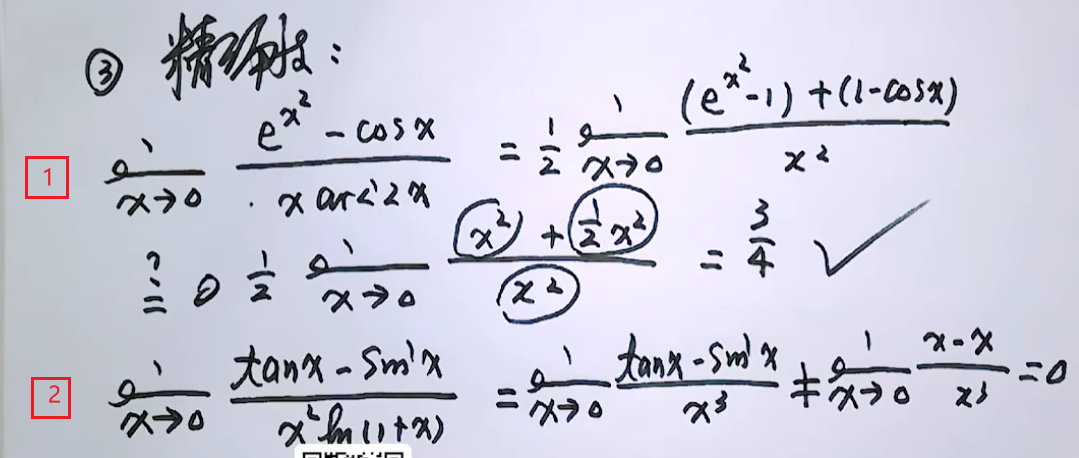 ③ 精确度:
1 lim x→0 (e^(x²) - cosx)/(x arcsin2x) = 1/2 lim x→0 ((e^(x²)-1)+(1-cosx))/x²
?= 1/2 lim x→0 (x² + 1/2 x²)/x² = 3/4 ✓
2 lim x→0 (tanx - sinx)/(x² ln(1+x)) = lim x→0 (tanx - sinx)/x³ ≠ lim x→0 (x-x)/x³ = 0